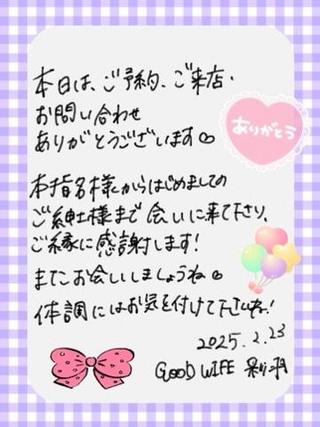 本日は、ご予約、ご来店、
お問い合わせ
ありがとうございます♡
ありがとう
本指名様からはじめましての
ご紳士様まで会いに来て下さり、
ご縁に感謝します!
またお会いしましょうね♡
体調にはお気を付けて下さいね!
2025.2.23
GOOD WIFE